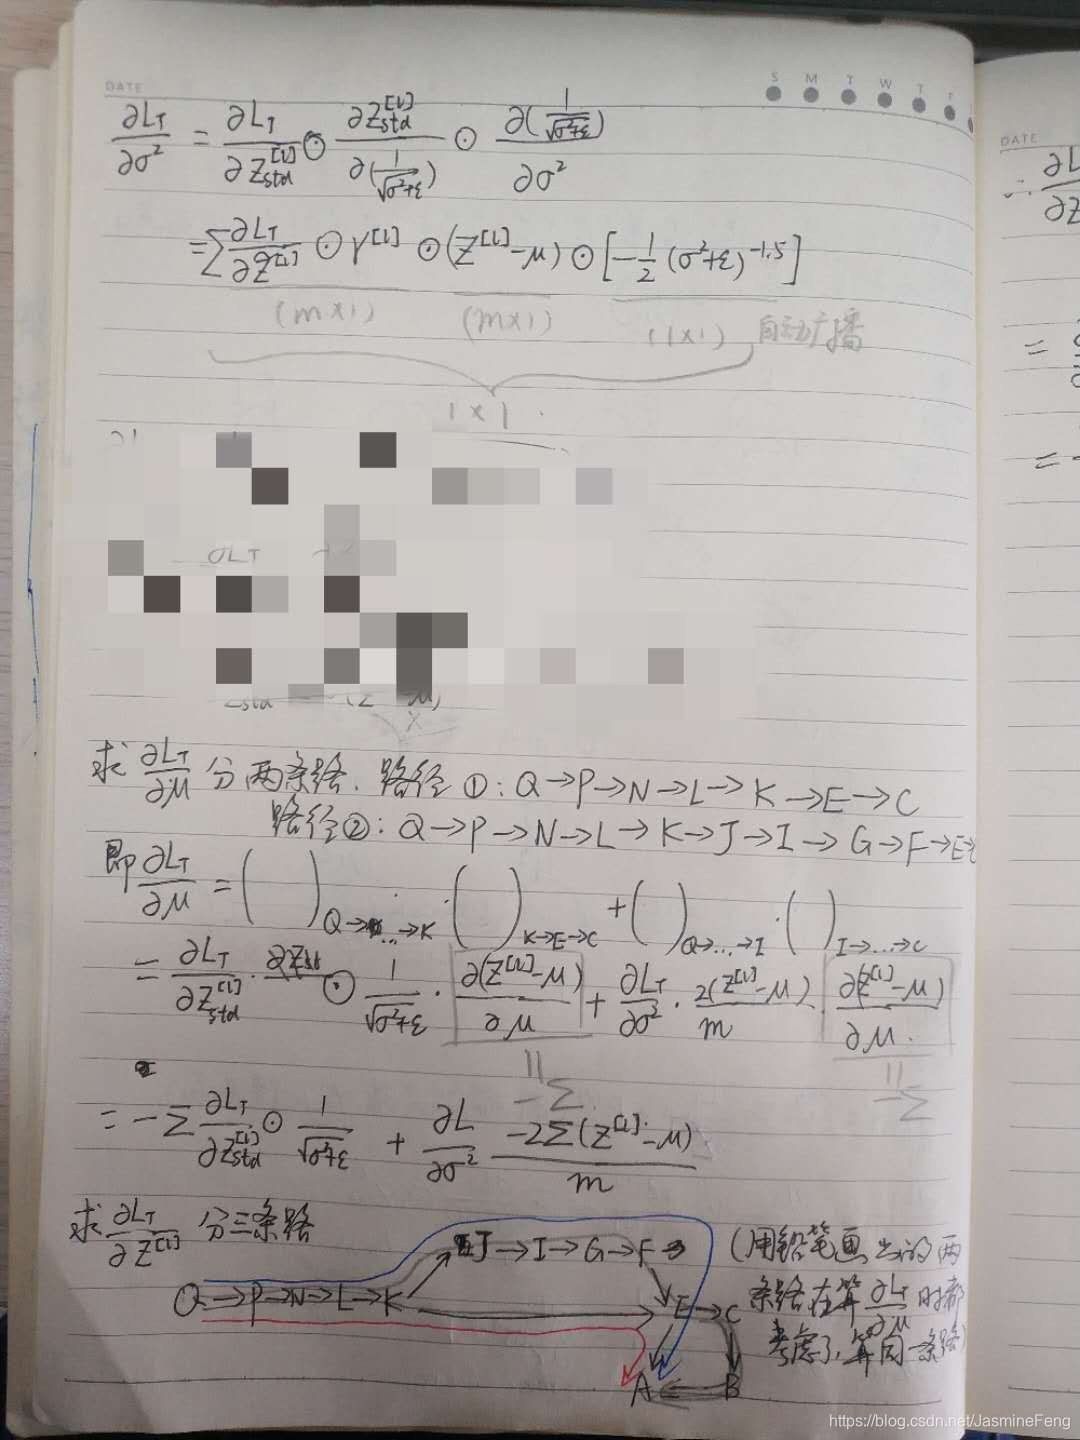 DATE S M T W T F
∂L_T/∂σ² = ∂L_T/∂Z_std^[l] ⊙ ∂Z_std^[l]/∂(1/√(σ²+ε)) ⊙ ∂(1/√(σ²+ε))/∂σ²
=∑ ∂L_T/∂Z̃^[l] ⊙ γ^[l] ⊙ (Z^[l]-μ) ⊙ [-1/2 (σ²+ε)^-1.5]
(m×1) (m×1) (1×1) 自动广播
1×1
∂L_T
Z_std (Z μ)
求 ∂L_T/∂μ 分两条路. 路径①: Q→P→N→L→K→E→C
路径②: Q→P→N→L→K→J→I→G→F→E→C
即 ∂L_T/∂μ = ( )_Q→...→K · ( )_K→E→C + ( )_Q→...→I · ( )_I→...→C
= ∂L_T/∂Z_std^[l] · ⊙ 1/√(σ²+ε) · ∂(Z^[l]-μ)/∂μ + ∂L_T/∂σ² · 2(Z^[l]-μ)/m · ∂(Z^[l]-μ)/∂μ
-∑ -∑
= -∑ ∂L_T/∂Z_std^[l] ⊙ 1/√(σ²+ε) + ∂L/∂σ² -2∑(Z^[l]-μ)/m
求 ∂L_T/∂Z^[l] 分三条路
J→I→G→F
Q→P→N→L→K E→C
A B
(用铅笔画出的两
条路在算 ∂L_T/∂μ 时都
考虑了,算同一条路)
DATE
∴ ∂L
∂Z
=
=
https://blog.csdn.net/JasmineFeng